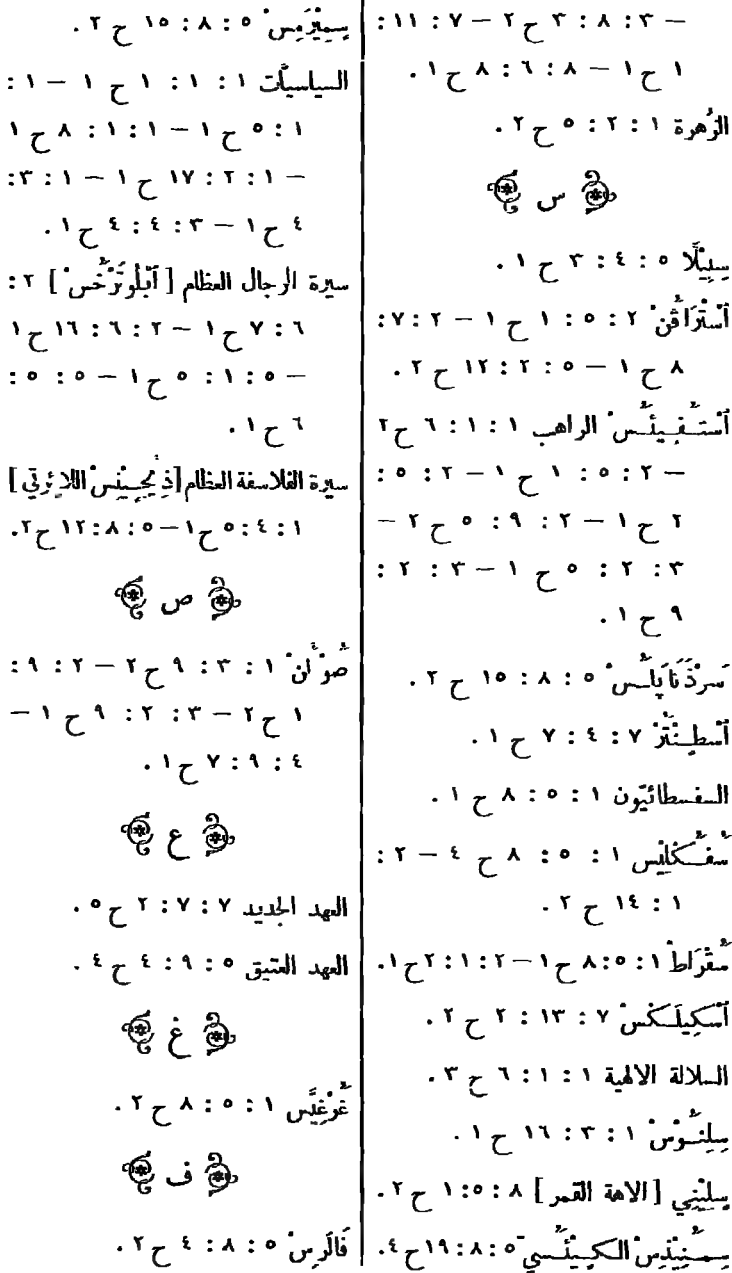 – ٣ : ٨ : ٣ ح ٢ – ٧ : ١١ :
١ ح ١ – ٨ : ٦ : ٨ ح ١ .
الزُهرة ١ : ٢ : ٥ ح ٢ .
س
سِبِيْلَّا ٥ : ٤ : ٣ ح ١ .
أَسْتْرَافُن ٢ : ٥ : ١ ح ١ – ٢ : ٧ :
٨ ح ١ – ٥ : ٢ : ١٢ ح ٢ .
أَسْتُـفِـيـئُـس الراهب ١ : ١ : ٦ ح ٢
– ٢ : ٥ : ١ ح ١ – ٢ : ٥ :
٢ ح ١ – ٢ : ٩ : ٥ ح ٢ –
٣ : ٢ : ٥ ح ١ – ٣ : ٢ :
٩ ح ١ .
سَرْذَنَاپَلُس ٥ : ٨ : ١٥ ح ٢ .
أَسْطِـنْتُرْ ٧ : ٤ : ٧ ح ١ .
السفسطائيّون ١ : ٥ : ٨ ح ١ .
سُفُـكْلِيْس ١ : ٥ : ٨ ح ٤ – ٢ :
١ : ١٤ ح ٢ .
سُقْرَاط ١ : ٥ : ٨ ح ١ – ٢ : ١ : ٢ ح ١ .
أَسْكِيلَـكْس ٧ : ١٣ : ٢ ح ٢ .
السلالة الالهية ١ : ١ : ٦ ح ٣ .
سِلِنُـوْس ١ : ٣ : ١٦ ح ١ .
سِلِيْنِي [ الاهة القمر ] ٨ : ٥ : ١ ح ٢ .
سِـمُـنِيْذِس الكِـيـئُـسي ٥ : ٨ : ١٩ ح ٤ .
سِمِيْرَمِس ٥ : ٨ : ١٥ ح ٢ .
السياسيَّات ١ : ١ : ١ ح ١ – ١ :
١ : ٥ ح ١ – ١ : ١ : ٨ ح ١
– ١ : ٢ : ١٧ ح ١ – ١ : ٣ :
٤ ح ١ – ٣ : ٤ : ٤ ح ١ .
سيرة الرجال العظام [ أَبْلُوتَرْخُس ] ٢ :
٦ : ٧ ح ١ – ٢ : ٦ : ١٦ ح ١
– ٥ : ١ : ٥ ح ١ – ٥ : ٥ :
٦ ح ١ .
سيرة الفلاسفة العظام [ذِيُجِـيْنِس اللايرْتي]
١ : ٤ : ٥ ح ١ – ٥ : ٨ : ١٢ ح ٢ .
ص
صُوْلُن ١ : ٣ : ٩ ح ٢ – ٢ : ٩ :
١ ح ٢ – ٣ : ٢ : ٩ ح ١ –
٤ : ٩ : ٧ ح ١ .
ع
العهد الجديد ٧ : ٧ : ٢ ح ٥ .
العهد العتيق ٥ : ٩ : ٤ ح ٤ .
غ
غُرْغِيَّس ١ : ٥ : ٨ ح ٢ .
ف
فَالَرِس ٥ : ٨ : ٤ ح ٢ .